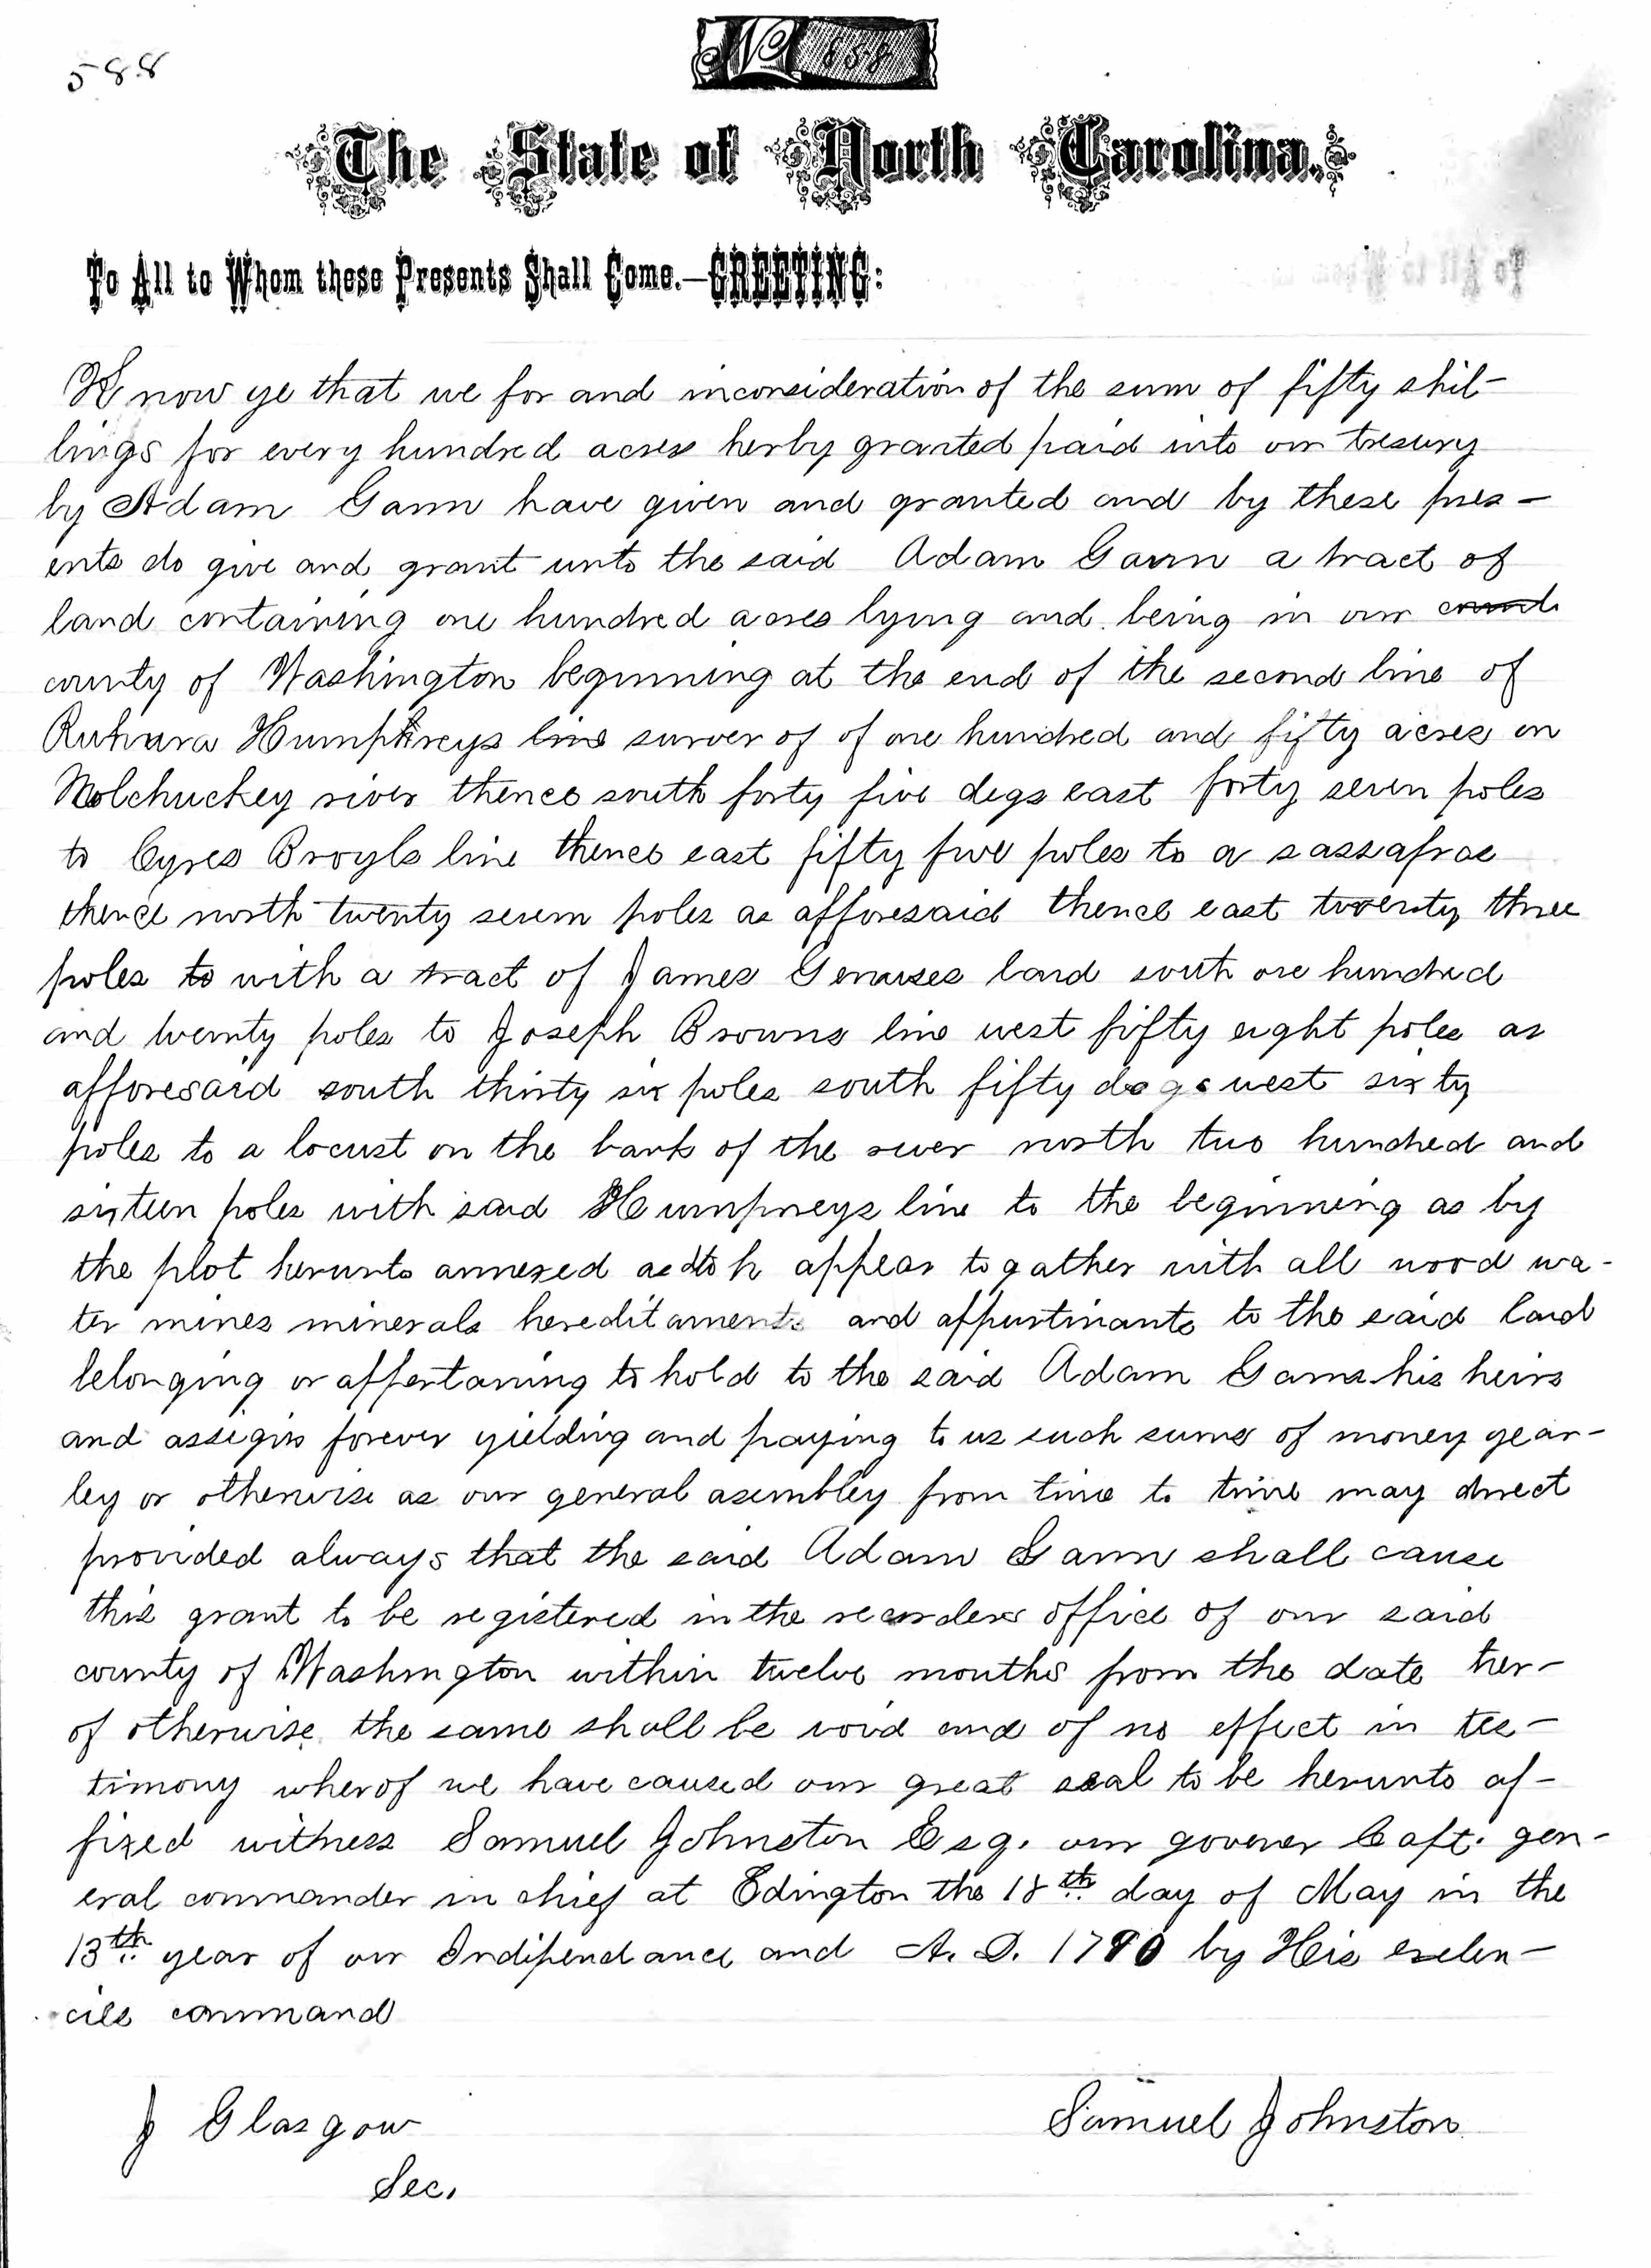 588
No 858
The State of North Carolina.
To All to Whom these Presents Shall Come.—GREETING:
Know ye that we for and inconsideration of the sum of fifty shil-
lings for every hundred acres herby granted paid into our tresury
by Adam Gann have given and granted and by these pres-
ents do give and grant unto the said Adam Gann a tract of
land containing one hundred acres lying and being in our
county of Washington beginning at the end of the second line of
Humphreys line surver of of one hundred and fifty acres on
Nolchuckey river thence south forty five degs east forty seven poles
to Cyres Broyls line thence east fifty five poles to a sassafras
thence north twenty seven poles as afforesaid thence east twenty three
poles to with a tract of James land south one hundred
and twenty poles to Joseph Browns line west fifty eight poles as
afforesaid south thirty six poles south fifty degs west sixty
poles to a locust on the bank of the river north two hundred and
sixteen poles with said Humphreys line to the beginning as by
the plot herunto annexed as doth appear togather with all wood wa-
ter mines minerals hereditaments and appurtinants to the said land
belonging or appertaning to hold to the said Adam Gann his heirs
and assigns forever yielding and paying to us such sums of money year-
ley or otherwise as our general asembley from time to time may direct
provided always that the said Adam Gann shall cause
this grant to be registered in the recorders office of our said
county of Washington within twelve months from the date her-
of otherwise the same shall be void and of no effect in tes-
timony wherof we have caused our great seal to be herunto af-
fixed witness Samuel Johnston Esq. our govener Capt. gen-
eral commander in chief at Edington the 18th day of May in the
13th year of our Indipendance and A. D. 1790 by His exelen-
cies command
J Glasgow
Samuel Johnston
Sec.